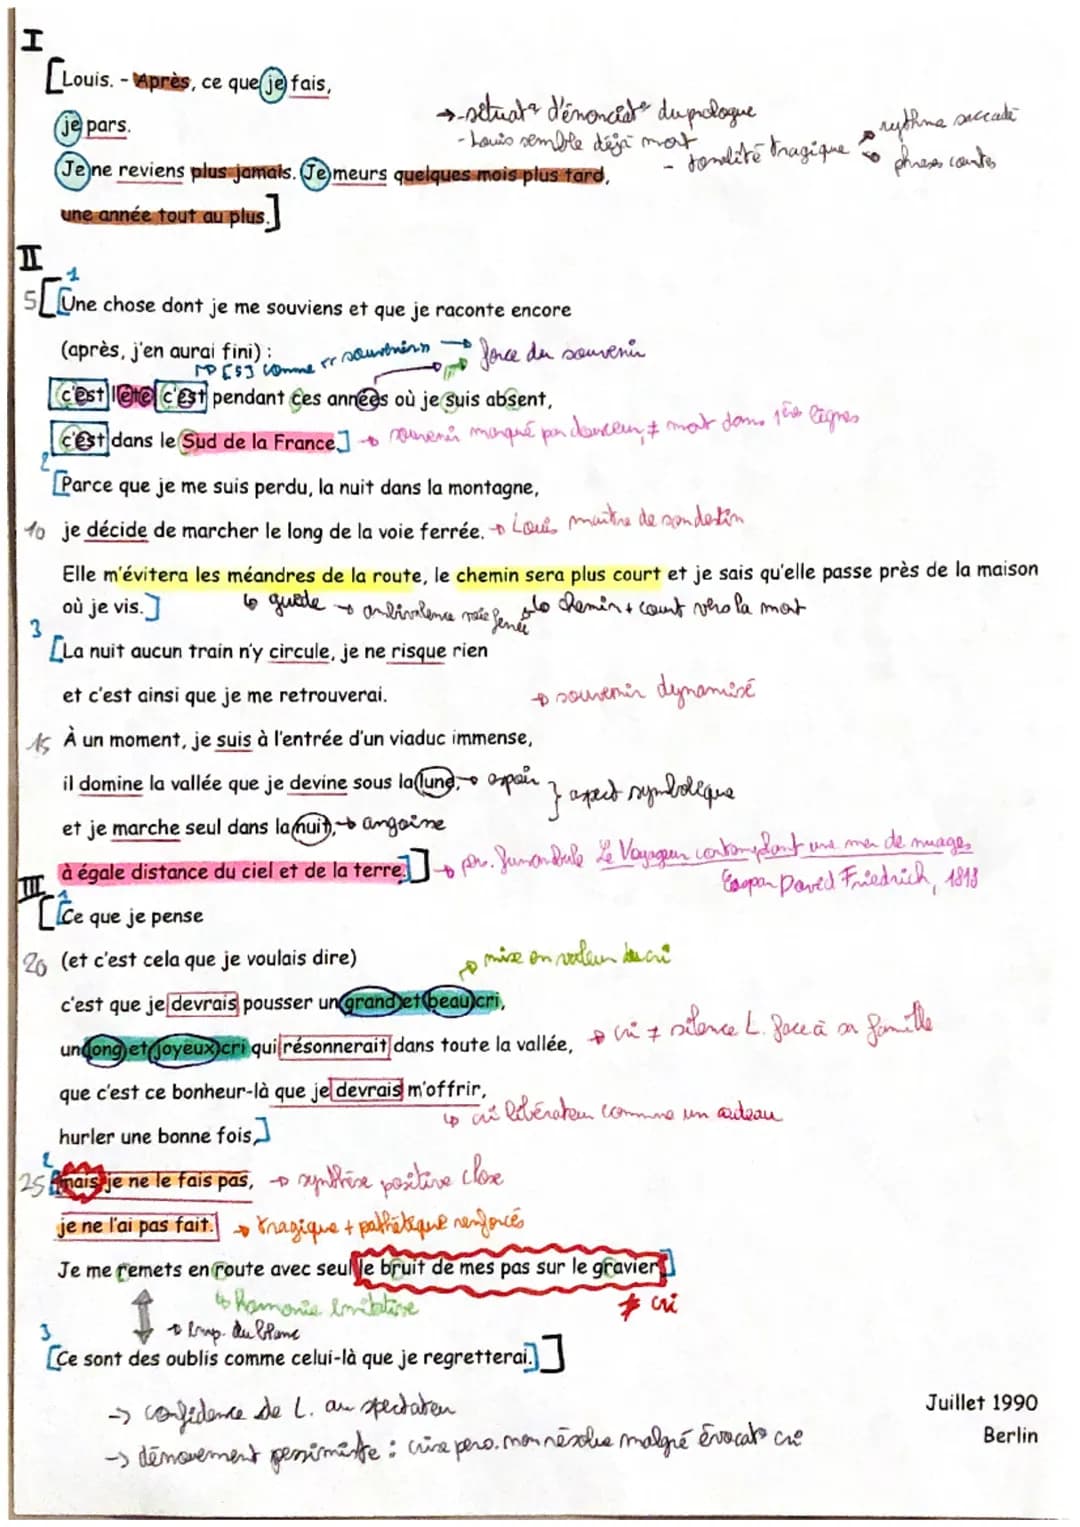 I
[Louis. - Après, ce que je fais,
je pars.
→ - situat° d'énonciat° du prologue
- Louis semble déjà mort
- tonalité tragique → rythme saccadé
→ phrases courtes
Je ne reviens plus jamais. Je meurs quelques mois plus tard,
une année tout au plus.]
II
1
5 [[Une chose dont je me souviens et que je raconte encore
(après, j'en aurai fini) :
→ [s] comme "souvenir" → force du souvenir
c'est l'été c'est pendant ces années où je suis absent,
c'est dans le Sud de la France.] → souvenir marqué par douceur, ≠ mort dans 1ères lignes
2
[Parce que je me suis perdu, la nuit dans la montagne,
10 je décide de marcher le long de la voie ferrée. → Louis maître de son destin
Elle m'évitera les méandres de la route, le chemin sera plus court et je sais qu'elle passe près de la maison
où je vis.] ↳ guide → ambivalence voie ferrée ↳ chemin + court vers la mort
3
[La nuit aucun train n'y circule, je ne risque rien
et c'est ainsi que je me retrouverai. → souvenir dynamisé
15 À un moment, je suis à l'entrée d'un viaduc immense,
il domine la vallée que je devine sous la lune, → espoir } aspect symbolique
et je marche seul dans la nuit, → angoisse
à égale distance du ciel et de la terre.]] → Le Voyageur contemplant une mer de nuages,
Caspar David Friedrich, 1818
III
1
[[Ce que je pense
20 (et c'est cela que je voulais dire)
→ mise en valeur du cri
c'est que je devrais pousser un grand et beau cri,
un long et joyeux cri qui résonnerait dans toute la vallée, → cri ≠ silence L. face à sa famille
que c'est ce bonheur-là que je devrais m'offrir,
↳ cri libérateur comme un cadeau
hurler une bonne fois,]
2
25 [mais je ne le fais pas, → synthèse positive close
je ne l'ai pas fait. → tragique + pathétique renforcés
Je me remets en route avec seul le bruit de mes pas sur le gravier.]
↳ Harmonie imitative
≠ cri
→ imp. du blanc
3
[Ce sont des oublis comme celui-là que je regretterai.]]
→ confidence de L. au spectateur
→ dénouement pessimiste : crise pers. non résolue malgré évocat° cri
Juillet 1990
Berlin